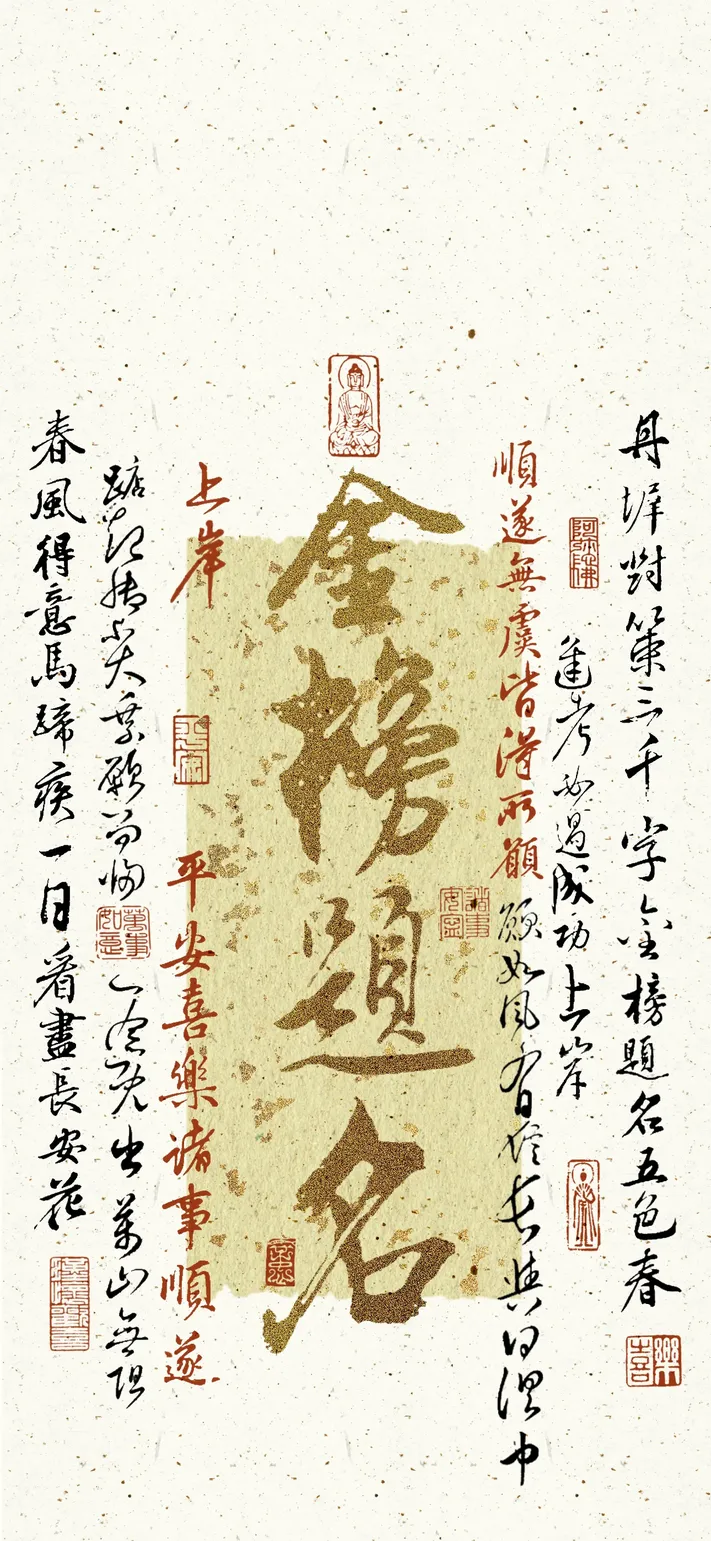 丹墀對策三千字金榜題名五色春
喜樂
逢考必過成功上岸
順遂無虞皆得所願
願如風有信長與日俱中
金榜題名
上岸
平安
平安喜樂諸事順遂
萬事如意
一念既出萬山無阻
春風得意馬蹄疾一日看盡長安花